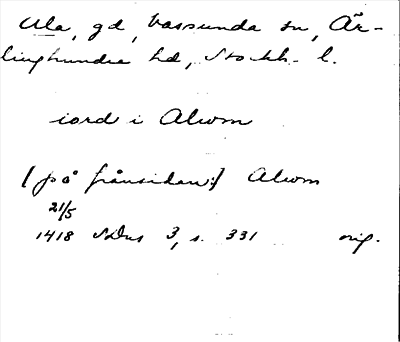 Ala, gd, Vassunda sn, Är-
linghundra hd, Stockh. l.
iord i Alwm
[på frånsidan:] Alwm
21/5
1418 SDns 3, s. 331 orig.